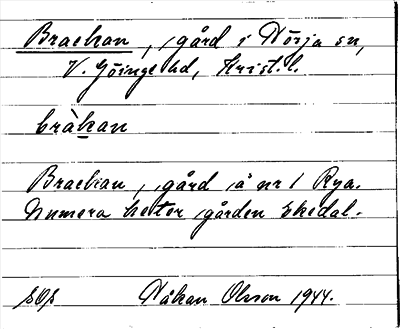 Braekan, gård i Nörja sn,
V. Göinge hd, Krist. l.
bràkan
Braekan, gård å nr 1 Rya.
Numera heter gården Ekedal.
Håkan Olsson 1944.